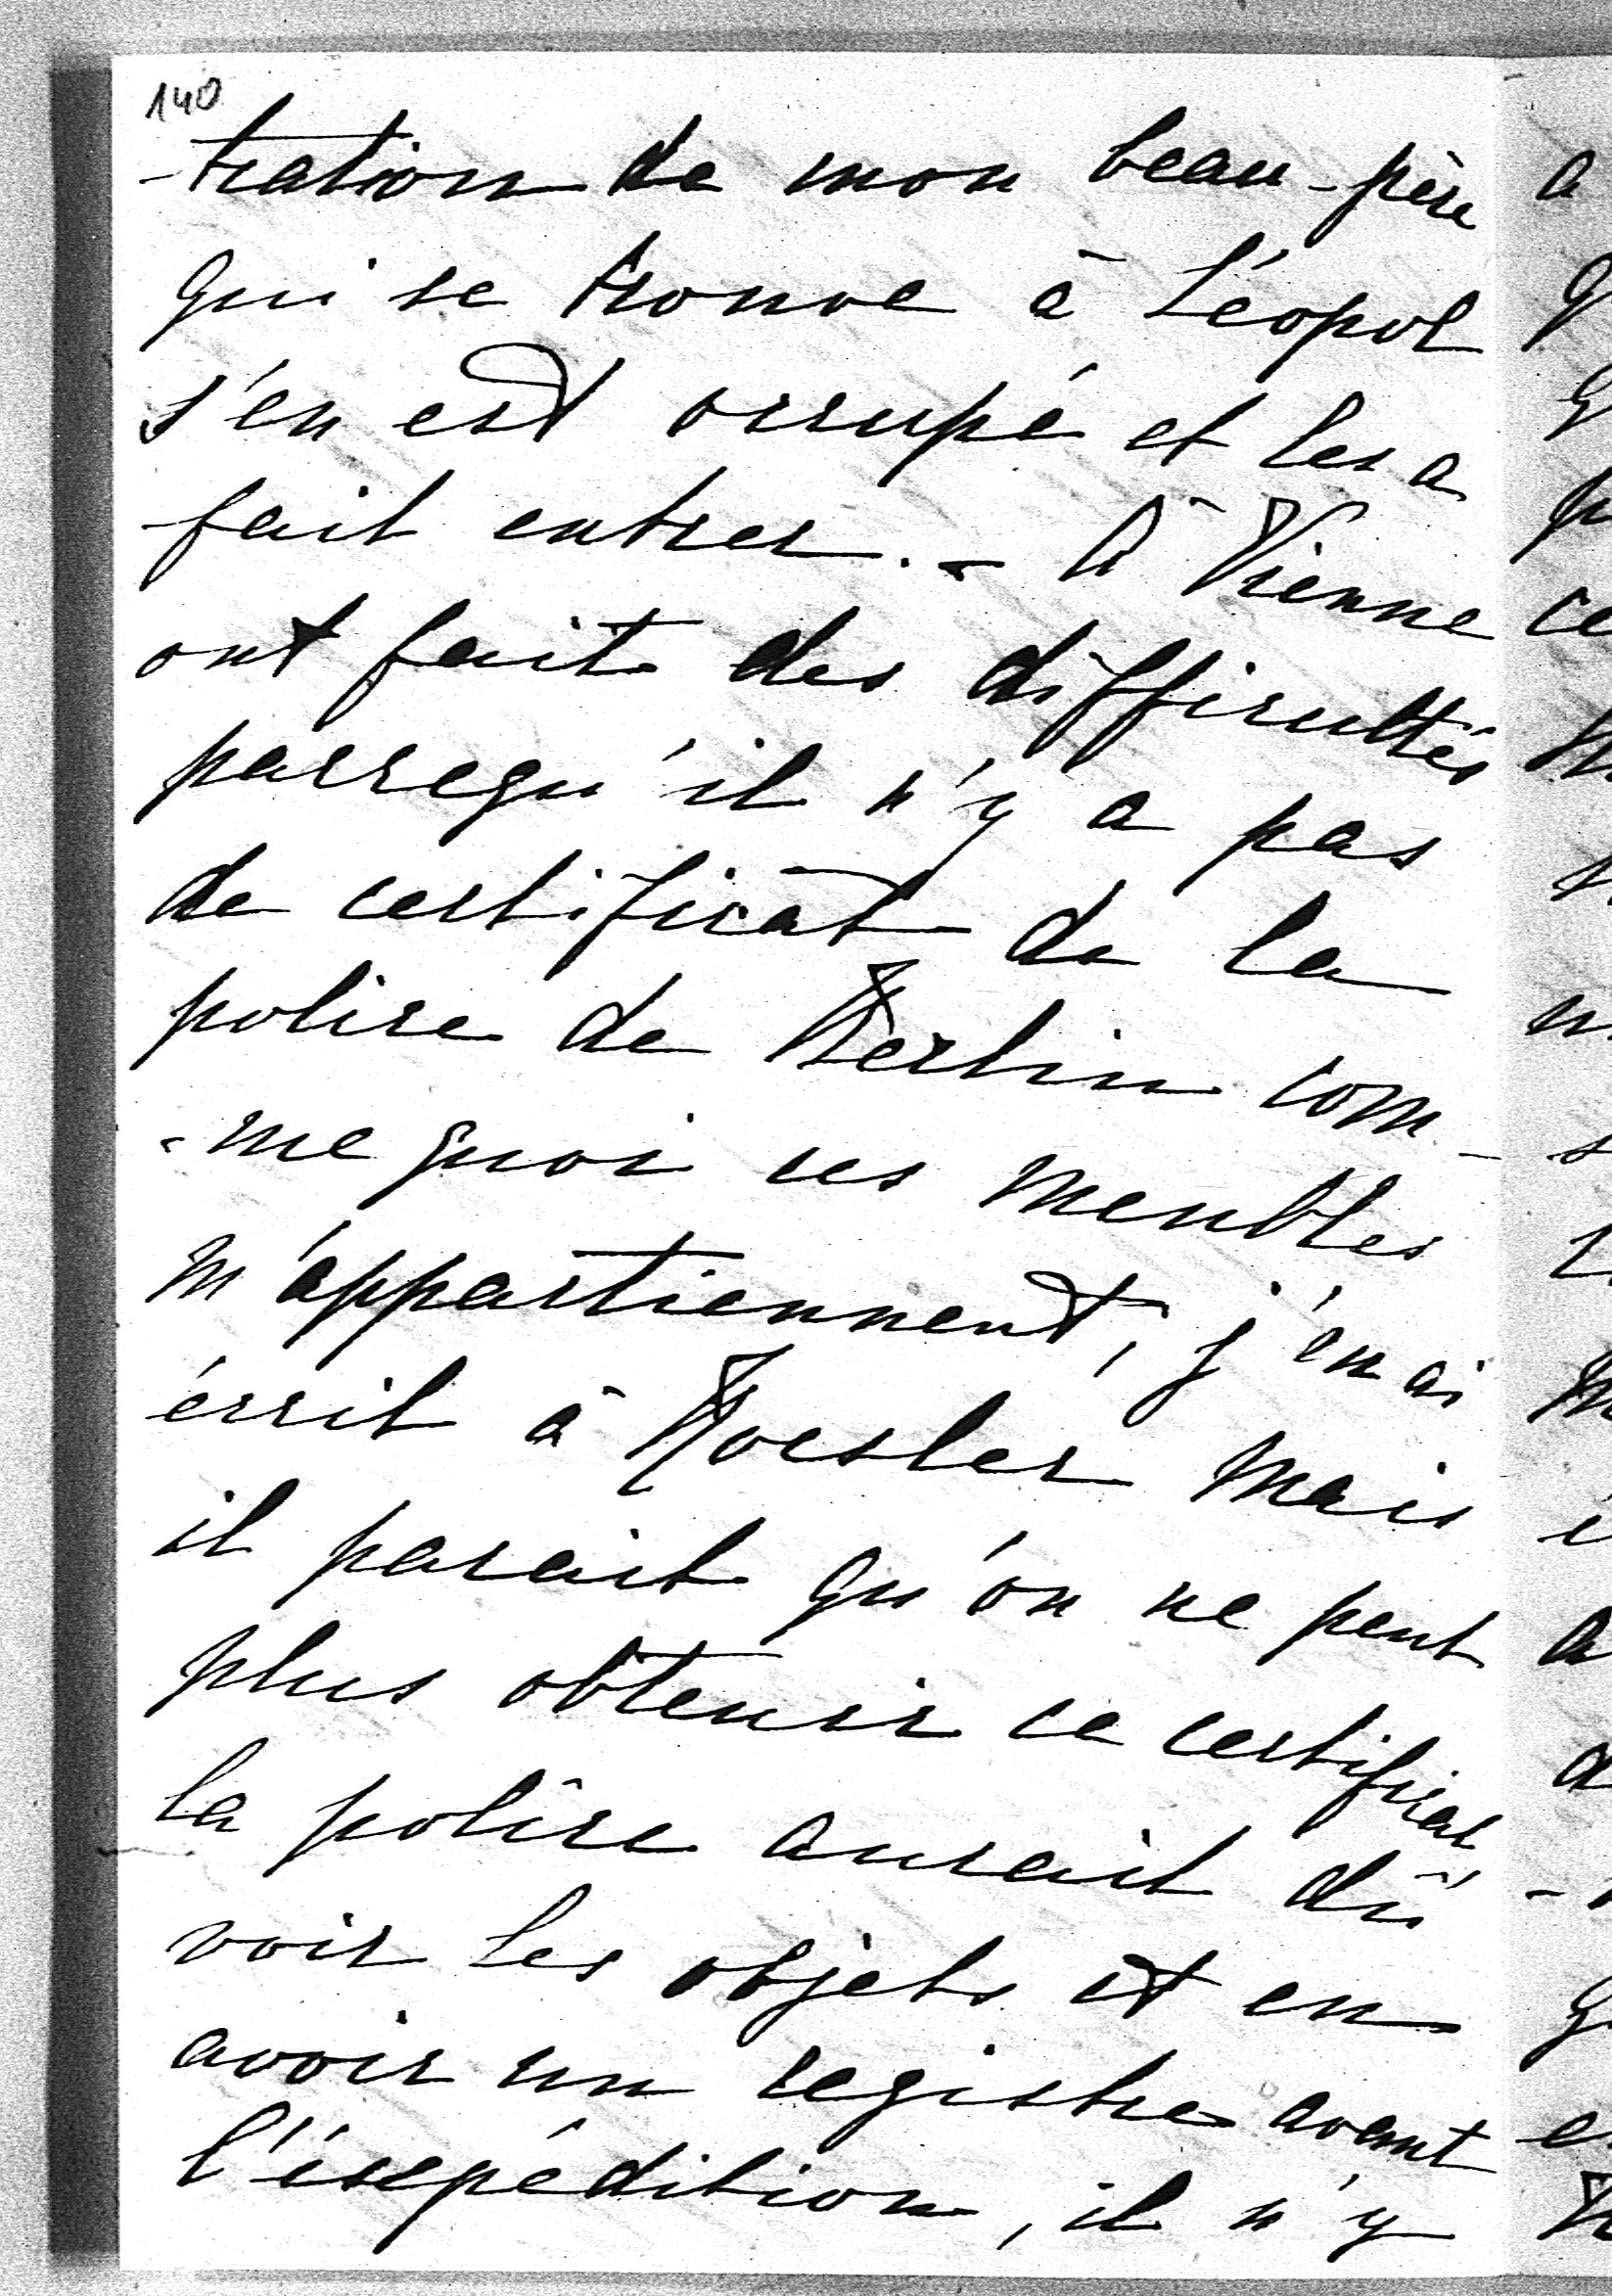 140
-tration de mon beau-père
qui se trouve à Léopol
s'en est occupé et les a
fait entrer. - À Vienne
ont fait des difficultés
parcequ'il n'y a pas
de certificat de la
police de Berlin com-
-me quoi ces meubles
m'appartiennent, j'en ai
écrit à Koesler mais
il parait qu'on ne peut
plus obtenir ce certificat
la police aurait dû
voir les objets et en
avoir un registre avant
l'éxpédition, il n'y